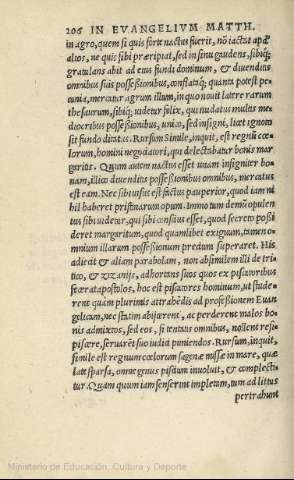 206 IN EVANGELIVM MATTH.
in agro, quem si quis forte nactus fuerit, nõ iactat apd
alios, ne quis sibi præripiat, sed in sinu gaudens, sibiq;
gratulans abit ad eius fundi dominum, & diuenditis
omnibus suis possessionibus, conflatáq; quanta potest pe
cunia, mercatur agrum illum, in quo nouit latere rarum
thesaurum, sibiq; uidetur felix, qui nudatus multis me
diocribus possessionibus, unico, sed insigni, licet ignoto
sit fundo ditatus. Rursum Simile, inquit, est regnũ cœ
lorum, homini negociatori, qui delectabatur bonis mar
garitis. Quum autem nactus esset unam insigniter bo
nam, illico diuenditis possessionibus omnibus, mercatus
est eam. Nec sibi uisus est factus pauperior, quod iam ni
hil haberet pristinarum opum. Immo tum demũ opulen
tus sibi uidetur, qui sibi conscius esset, quod secreto possi
deret margaritum, quod quamlibet exiguum, tamen o
mnium illarum possessionum precium superaret. His
adiecit & aliam parabolam, non absimilem illi de triti
co, & zizanijs, adhortans suos quos ex piscatoribus
fecerat apostolos, hoc est piscatores hominum, ut stude
rent quàm plurimis attrahẽdis ad professionem Euan
gelicam, nec statim abijcerent, ac perderent malos bo
nis admixtos, sed eos, si tentatis omnibus, nollent resi
piscere, seruarẽt suo iudici puniendos. Rursum, inquit,
simile est regnum cœlorum sagenæ missæ in mare, quæ
late sparsa, omne genus pisciũ inuoluit, & complecti
tur. Quam quum iam senserint impletam, tum ad littus
pertrahunt
Ministerio de Educación, Cultura y Deporte